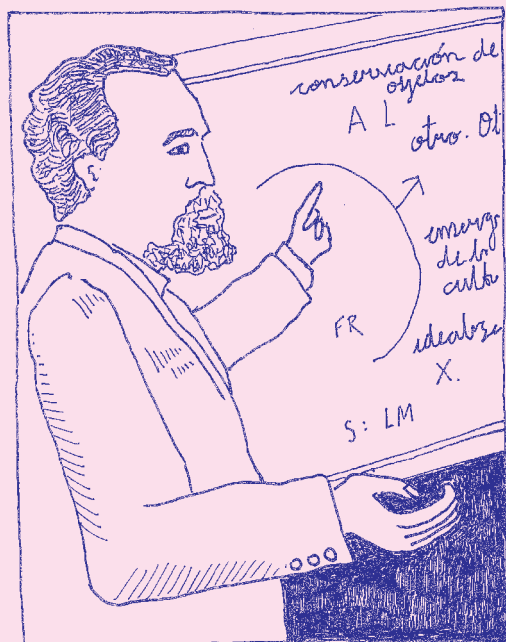 conservación de
objetos
A L
otro. Ot
emerg
de la
cultu
FR
idealiza
X.
S: LM